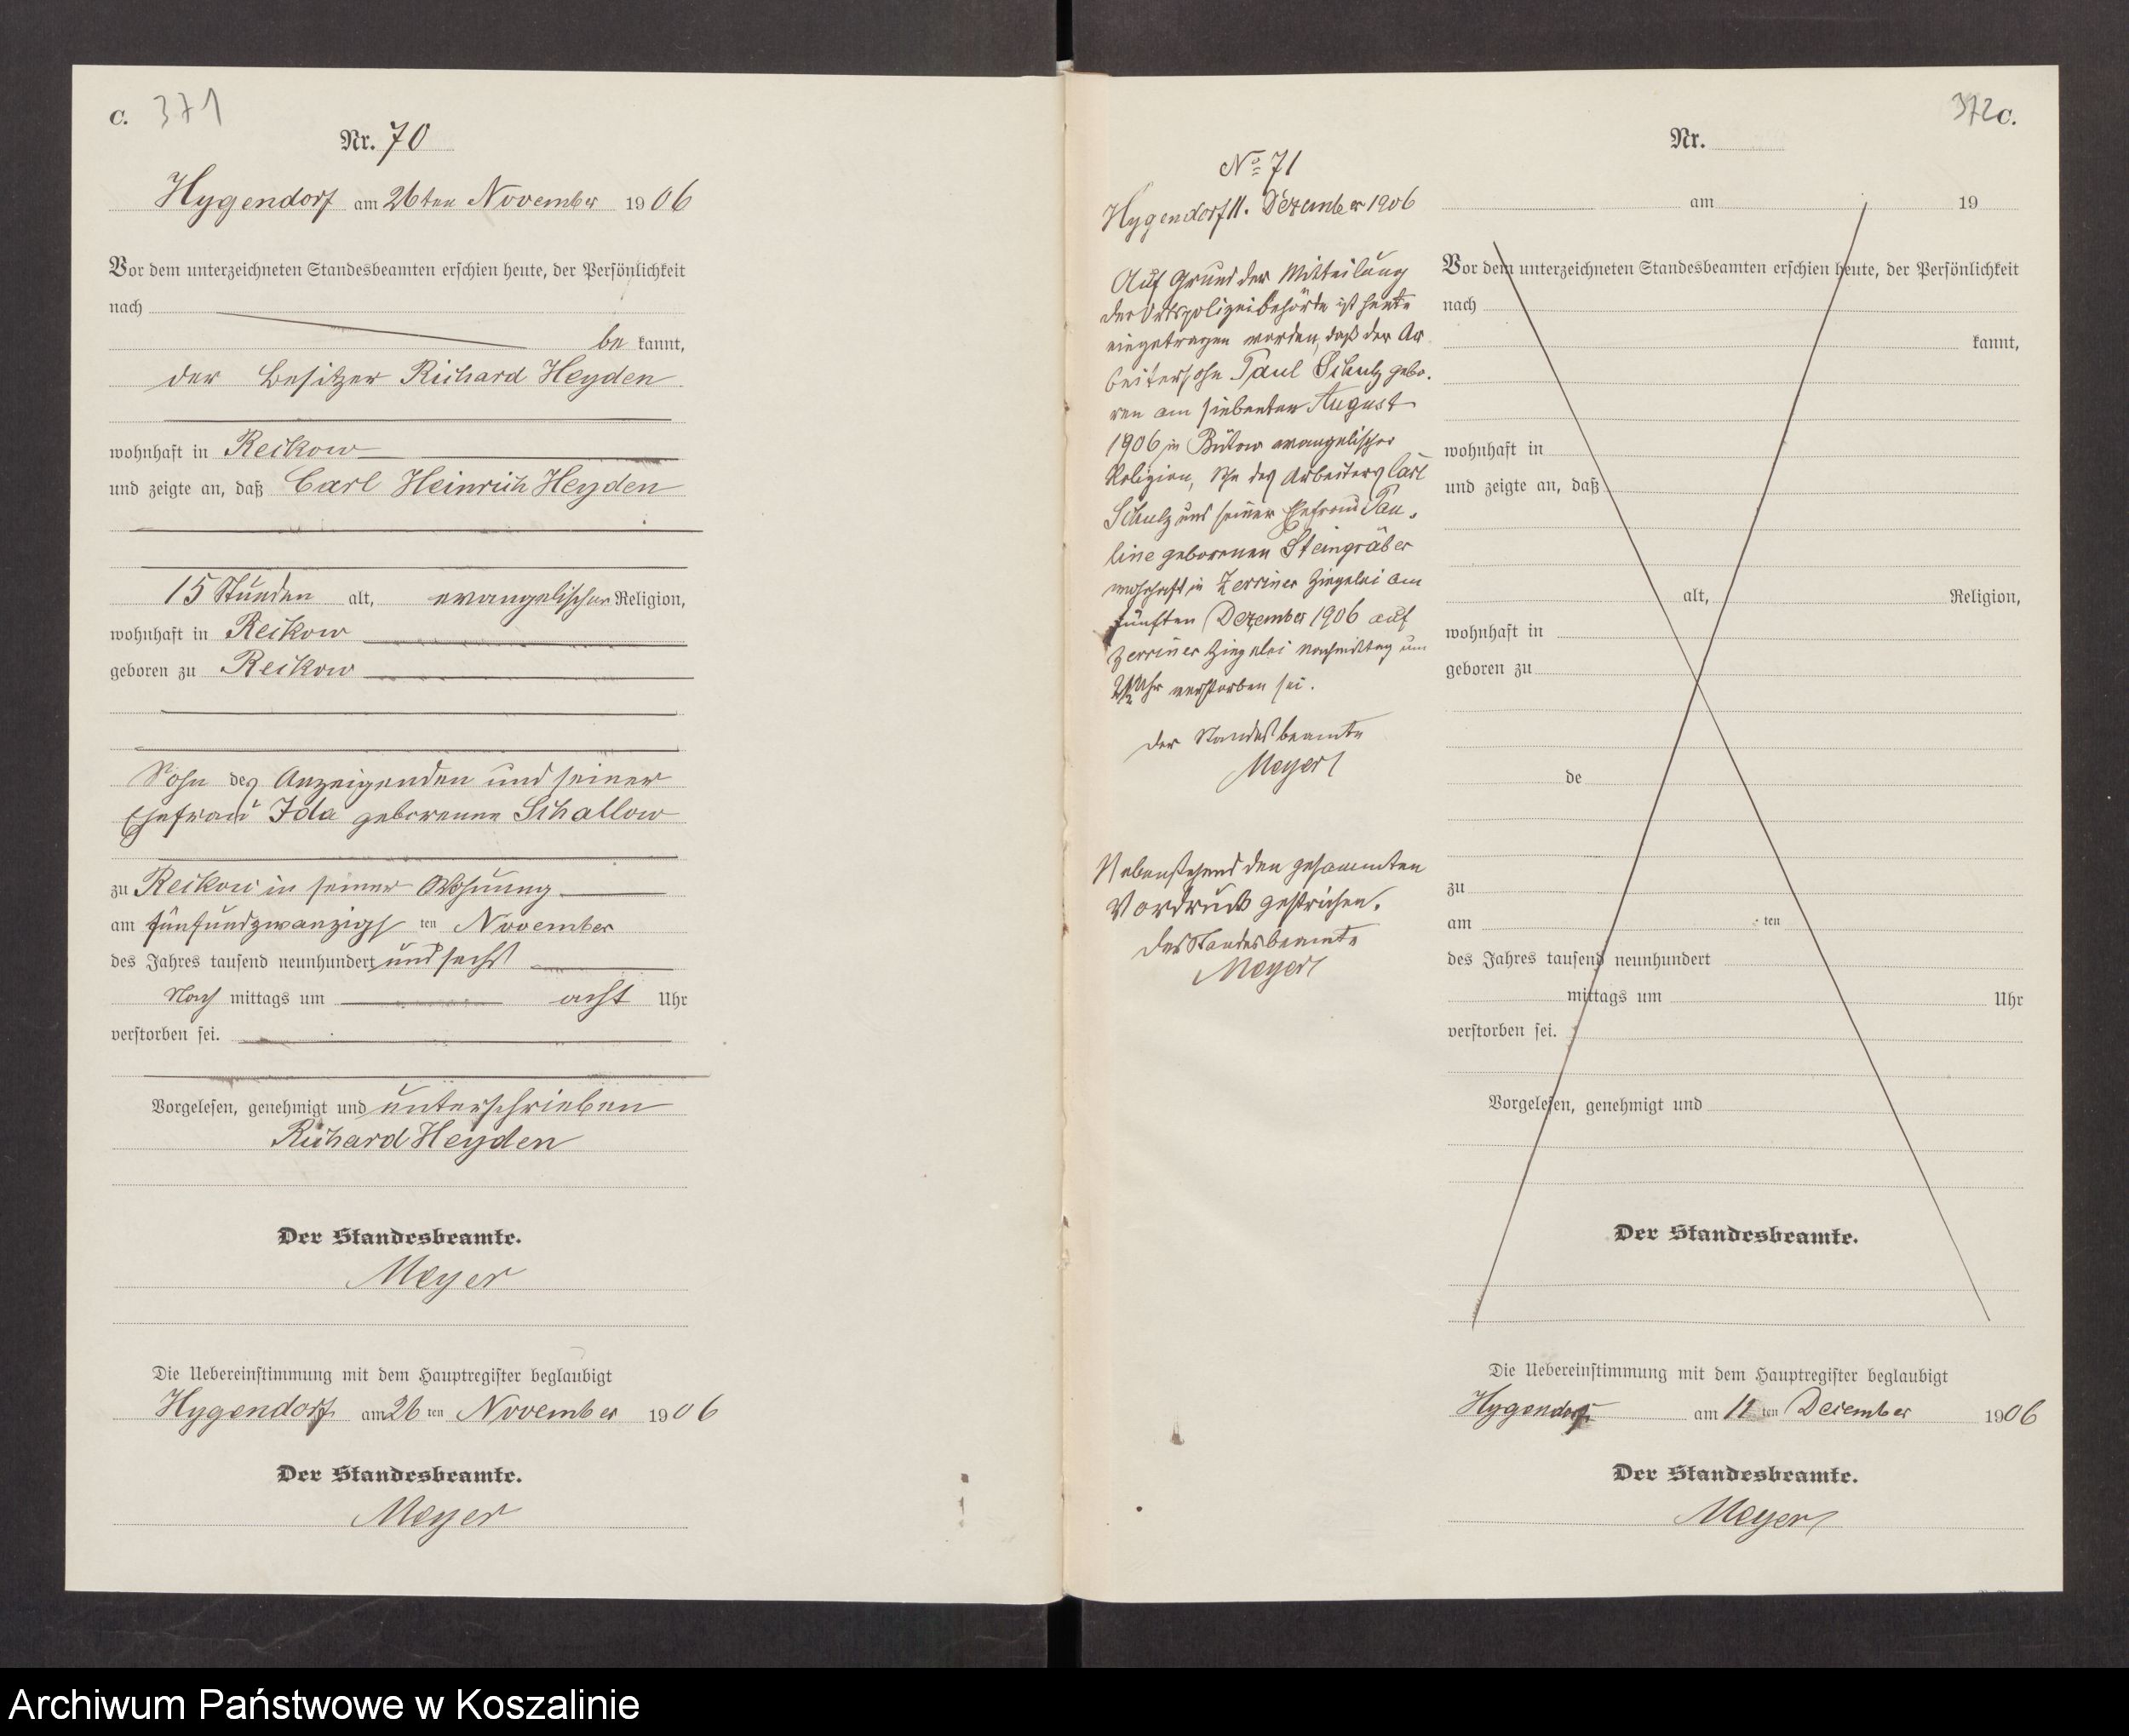 C. 371
Nr. 70
Hygendorf am 26ten November 1906
Vor dem unterzeichneten Standesbeamten erschien heute, der Persönlichkeit
nach
be kannt,
der Besitzer Richard Heyden
wohnhaft in Reckow
und zeigte an, daß Carl Heinrich Heyden
15 Stunden alt, evangelischer Religion,
wohnhaft in Reckow
geboren zu Reckow
Sohn des Anzeigenden und seiner
Ehefrau Ida geborenen Schallow
zu Reckow in seiner Wohnung
am fünfundzwanzigsten November
des Jahres tausend neunhundert und sechs
Nach mittags um acht Uhr
verstorben sei.
Vorgelesen, genehmigt und unterschrieben
Richard Heyden
Der Standesbeamte.
Meyer
Die Uebereinstimmung mit dem Hauptregister beglaubigt
Hygendorf am 26 ten November 1906
Der Standesbeamte.
Meyer
No 71
Hygendorf 11. Dezember 1906
Auf Grund der Mitteilung
der Ortspolizeibehörde ist heute
eingetragen worden, daß der Ar
beitersohn Paul Schulz gebo-
ren am siebenten August
1906 in Bütow evangelischer
Religion, Sohn des Arbeiters Carl
Schulz und seiner Ehefrau Pau-
line geborenen Steingräber
wohnhaft in Zerriner Ziegelei am
fünften Dezember 1906 auf
Zerriner Ziegelei Nachmittag um
Uhr verstorben sei.
Der Standesbeamte
Meyer
Nebenstehend den gesammten
Vordruck gestrichen.
Der Standesbeamte
Meyer
372 C.
Nr.
am 19
Vor dem unterzeichneten Standesbeamten erschien heute, der Persönlichkeit
nach
kannt,
wohnhaft in
und zeigte an, daß
alt, Religion,
wohnhaft in
geboren zu
de
zu
am ten
des Jahres tausend neunhundert
mittags um Uhr
verstorben sei.
Vorgelesen, genehmigt und
Der Standesbeamte.
Die Uebereinstimmung mit dem Hauptregister beglaubigt
Hygendorf am 11 ten Dezember 1906
Der Standesbeamte.
Meyer
Archiwum Państwowe w Koszalinie